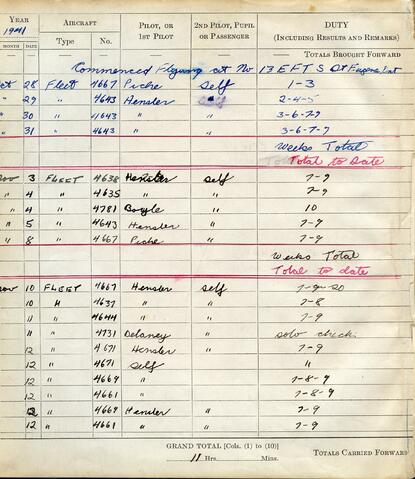 YEAR AIRCRAFT PILOT, OR 2ND PILOT, PUPIL DUTY
1941 1ST PILOT OR PASSENGER (INCLUDING RESULTS AND REMARKS)
MONTH DATE Type No.
— — — TOTALS BROUGHT FORWARD
Commenced Flying at No 13 E F T S St Eugene Ont
Oct 28 Fleet 4667 Piche Self 1-3
" 29 " 4643 Hensler Self 2-4-5
" 30 " 4643 " " 3-6-7-9
" 31 " 4643 " " 3-6-7-9
Weeks Total
Total to Date
Nov 3 FLEET 4638 Hensler self 7-9
" 4 " 4635 " " 7-9
" 4 " 4781 Boyle " 10
" 5 " 4643 Hensler " 7-9
" 8 " 4667 Piche " 7-9
Weeks Total
Total to date
Nov 10 FLEET 4667 Hensler self 7-9-20
10 " 4637 " " 7-8
11 " 4644 " " 7-9
11 " 4731 Delaney " solo check
12 " 4671 Hensler " 7-9
12 " 4671 Self "
12 " 4669 " " 7-8-9
12 " 4661 " " 7-8-9
12 " 4669 Hensler " 7-9
12 " 4661 " " 7-9
GRAND TOTAL [Cols. (1) to (10)]
11 Hrs. Mins. TOTALS CARRIED FORWARD